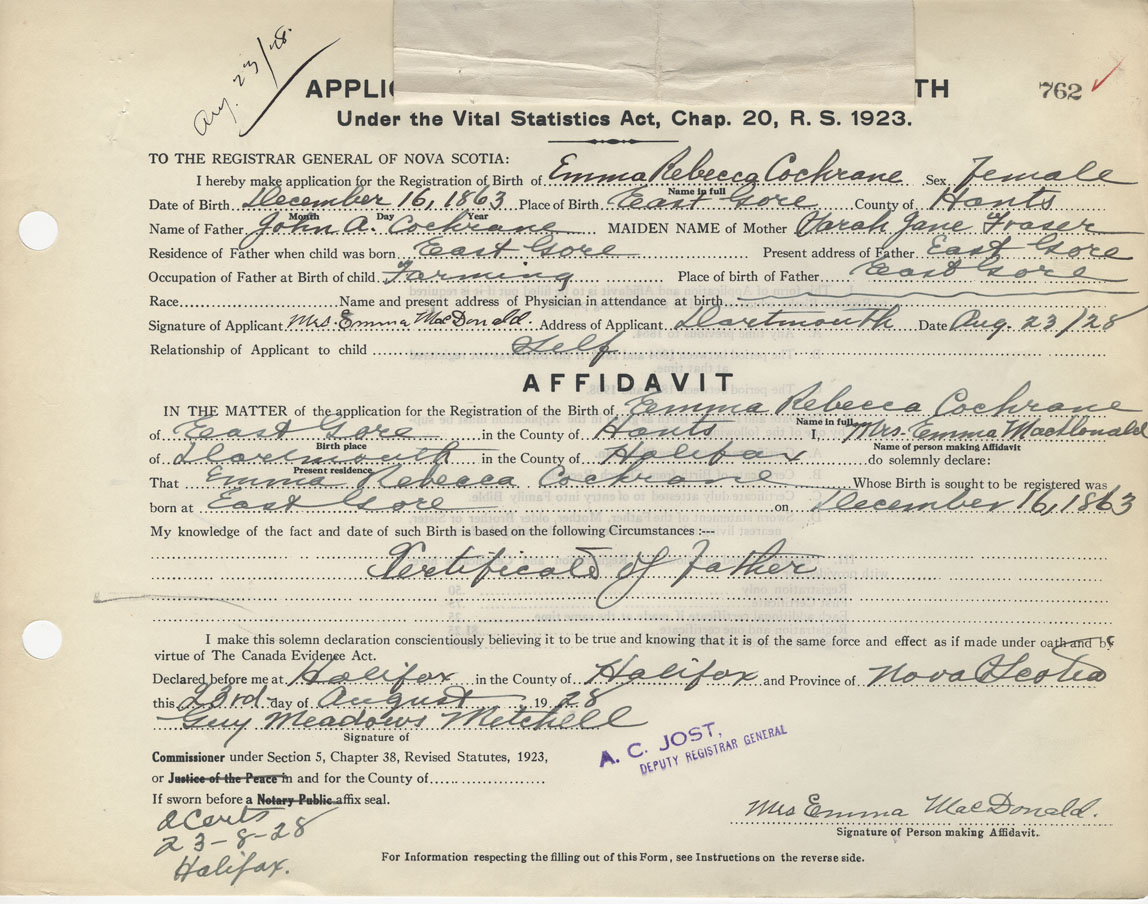 Aug. 23/28.
APPLIC TH 762
Under the Vital Statistics Act, Chap. 20, R. S. 1923.
TO THE REGISTRAR GENERAL OF NOVA SCOTIA:
I hereby make application for the Registration of Birth of Emma Rebecca Cochrane Sex Female
Name in full
Date of Birth December 16, 1863 Place of Birth East Gore County of Hants
Month Day Year
Name of Father John A. Cochrane MAIDEN NAME of Mother Sarah Jane Fraser
Residence of Father when child was born East Gore Present address of Father East Gore
Occupation of Father at Birth of child Farming Place of birth of Father East Gore
Race Name and present address of Physician in attendance at birth
Signature of Applicant Mrs. Emma MacDonald. Address of Applicant Dartmouth Date Aug. 23/28
Relationship of Applicant to child Self
AFFIDAVIT
IN THE MATTER of the application for the Registration of the Birth of Emma Rebecca Cochrane
Name in full
of East Gore in the County of Hants I, Mrs. Emma MacDonald
Birth place Name of person making Affidavit
of Dartmouth in the County of Halifax do solemnly declare:
Present residence
That Emma Rebecca Cochrane Whose Birth is sought to be registered was
born at East Gore on December 16, 1863
My knowledge of the fact and date of such Birth is based on the following Circumstances :--
Certificate of Father
I make this solemn declaration conscientiously believing it to be true and knowing that it is of the same force and effect as if made under oath and by
virtue of The Canada Evidence Act.
Declared before me at Halifax in the County of Halifax and Province of Nova Scotia
this 23rd day of August 19 28
Guy Meadows Mitchell
Signature of
A. C. JOST,
DEPUTY REGISTRAR GENERAL
Commissioner under Section 5, Chapter 38, Revised Statutes, 1923,
or Justice of the Peace in and for the County of
If sworn before a Notary Public affix seal.
2 Certs
23-8-28
Halifax.
Mrs Emma MacDonald.
Signature of Person making Affidavit.
For Information respecting the filling out of this Form, see Instructions on the reverse side.